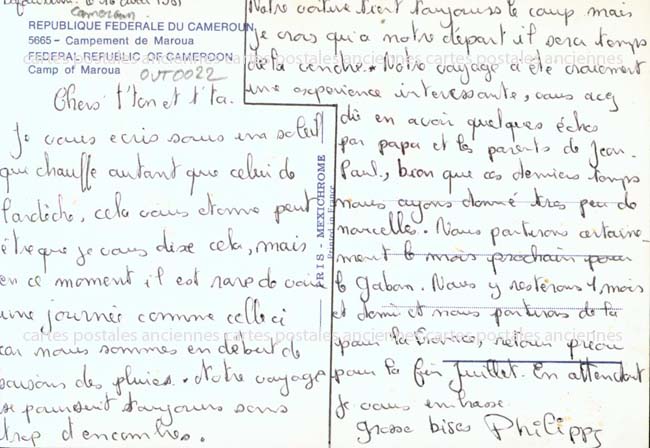 le 16 avril 1981
Cameroun
REPUBLIQUE FEDERALE DU CAMEROUN
5665 - Campement de Maroua
FEDERAL REPUBLIC OF CAMEROON
Camp of Maroua
OUT0022
Chers t'ton et t'ta.
Je vous ecris sous un soleil
qui chauffe autant que celui de
l'ardèche, cela vous etonne peut
être que je vous dise cela, mais
en ce moment il est rare de voir
une journée comme celle ci
car nous sommes en début de
saisons des pluies. Notre voyage
se poursuit toujours sans
trop d'encombres.
PARIS - MEXICHROME
Printed in France
Notre voiture tient toujours le coup mais
je crois qu'a notre départ il sera temps
de la vendre. Notre voyage a été vraiment
une expérience interessante, vous avez
dû en avoir quelques échos
par papa et les parents de Jean
Paul, bien que ces derniers temps
nous ayons donné très peu de
nouvelles. Nous partirons certaine-
ment le mois prochain pour
le Gabon. Nous y resterons 1 mois
et demi et nous partirons de là
pour la France, retour prévu
pour la fin Juillet. En attendant
je vous embrasse
grosse bises Philippe
cartes postales anciennes cartes postales anciennes cartes postales anciennes